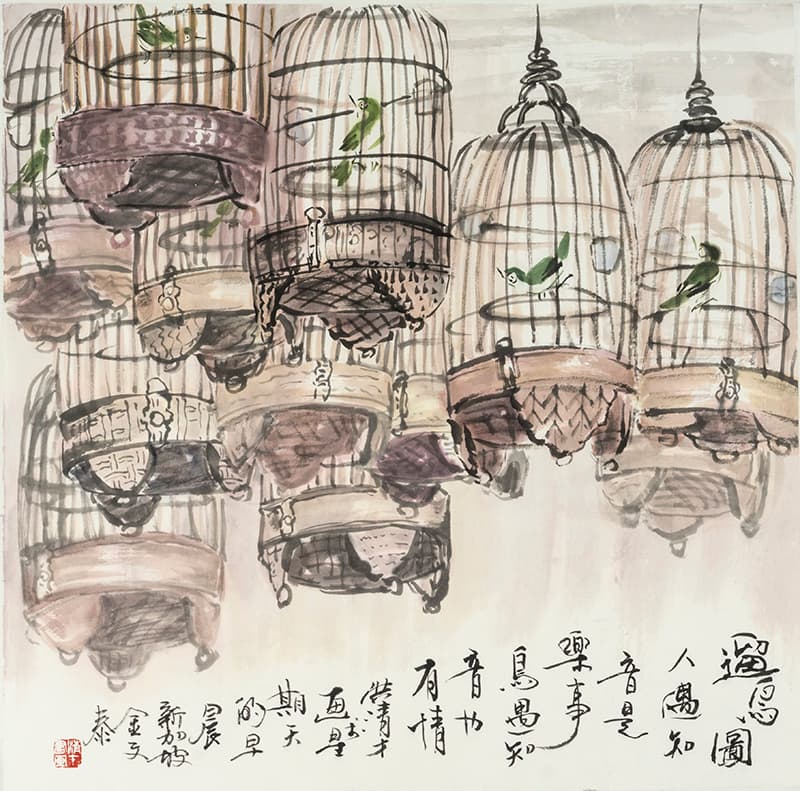 遛鳥圖
人遇知
音是
樂事
鳥遇知
音
有情
画於星
期天
的早
晨
新加坡
金文
泰